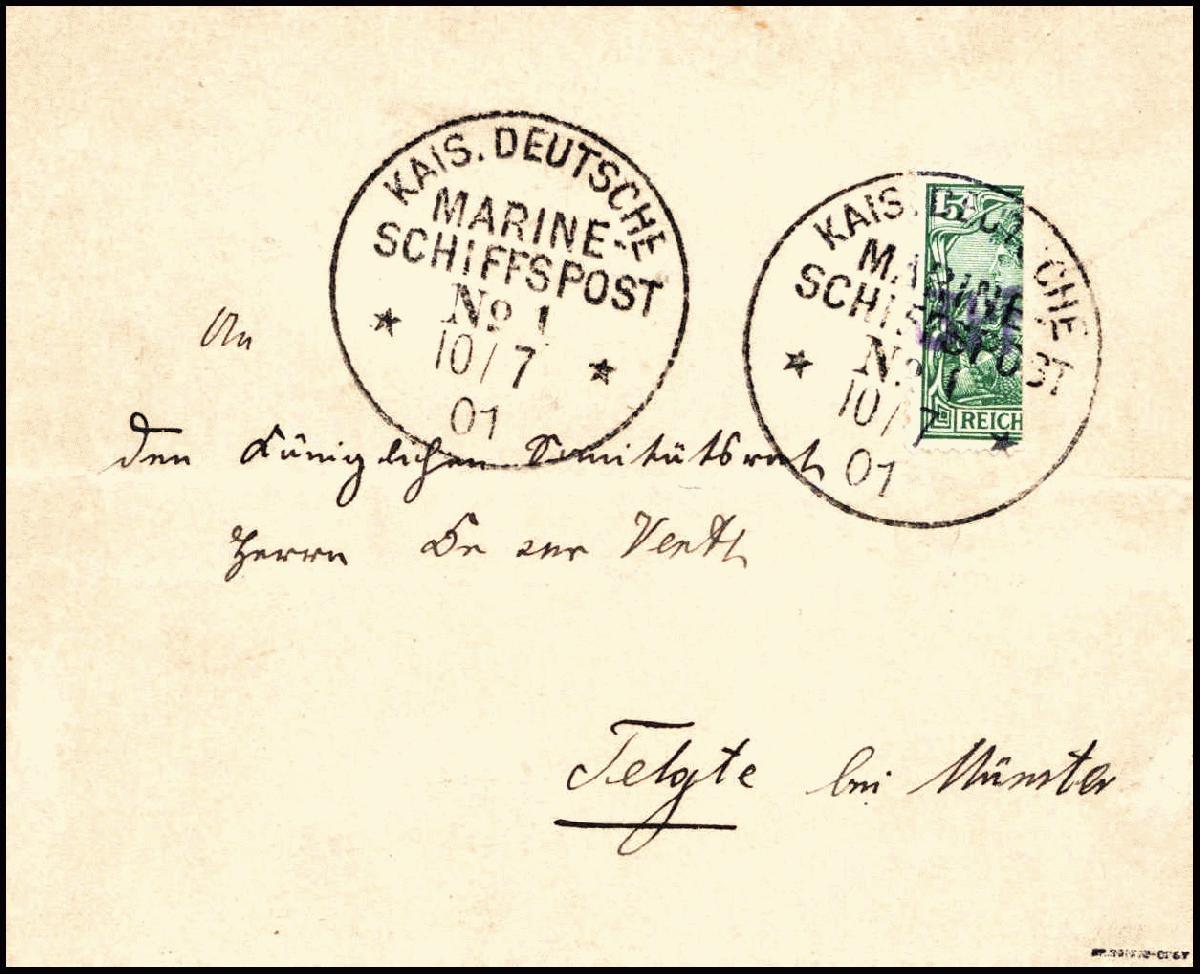 KAIS. DEUTSCHE
MARINE-
SCHIFFSPOST
No 1
10/7
01
KAIS. DEUTSCHE
MARINE-
SCHIFFSPOST
No 1
10/7
01
5
REICH
An
den Königlichen Sanitätsrat
Herrn Dr zur
Telgte bei Münster